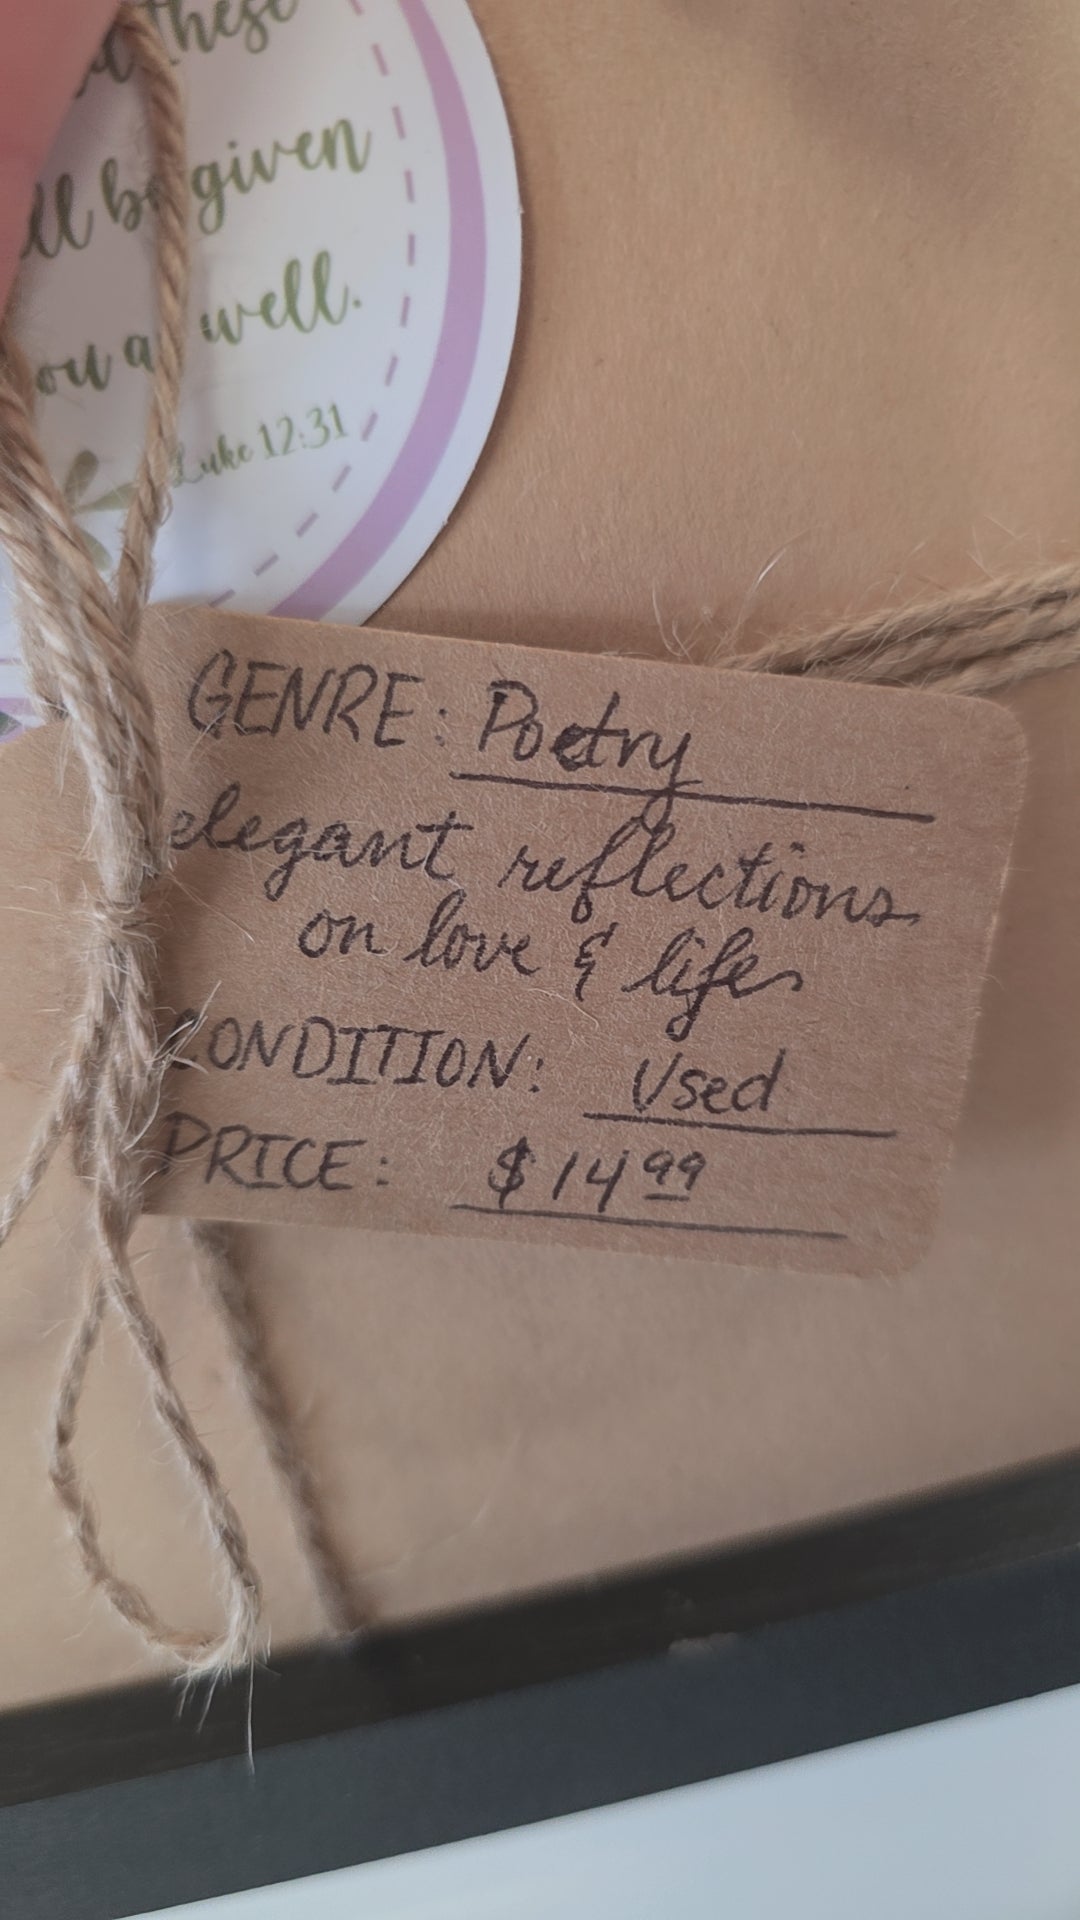 these
be given
well.
Luke 12:31
GENRE: Poetry
elegant reflections
on love & life
CONDITION: Used
PRICE: $14.99